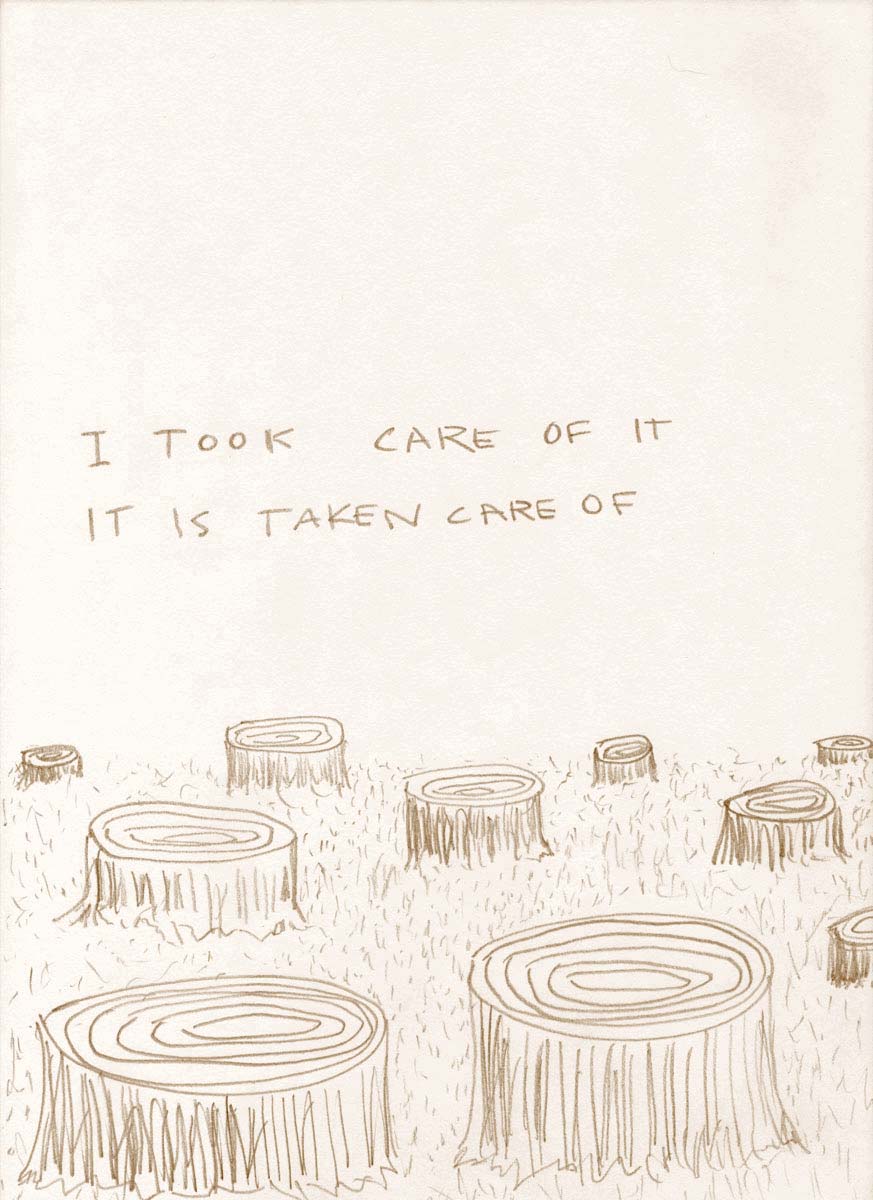 I TOOK CARE OF IT
IT IS TAKEN CARE OF